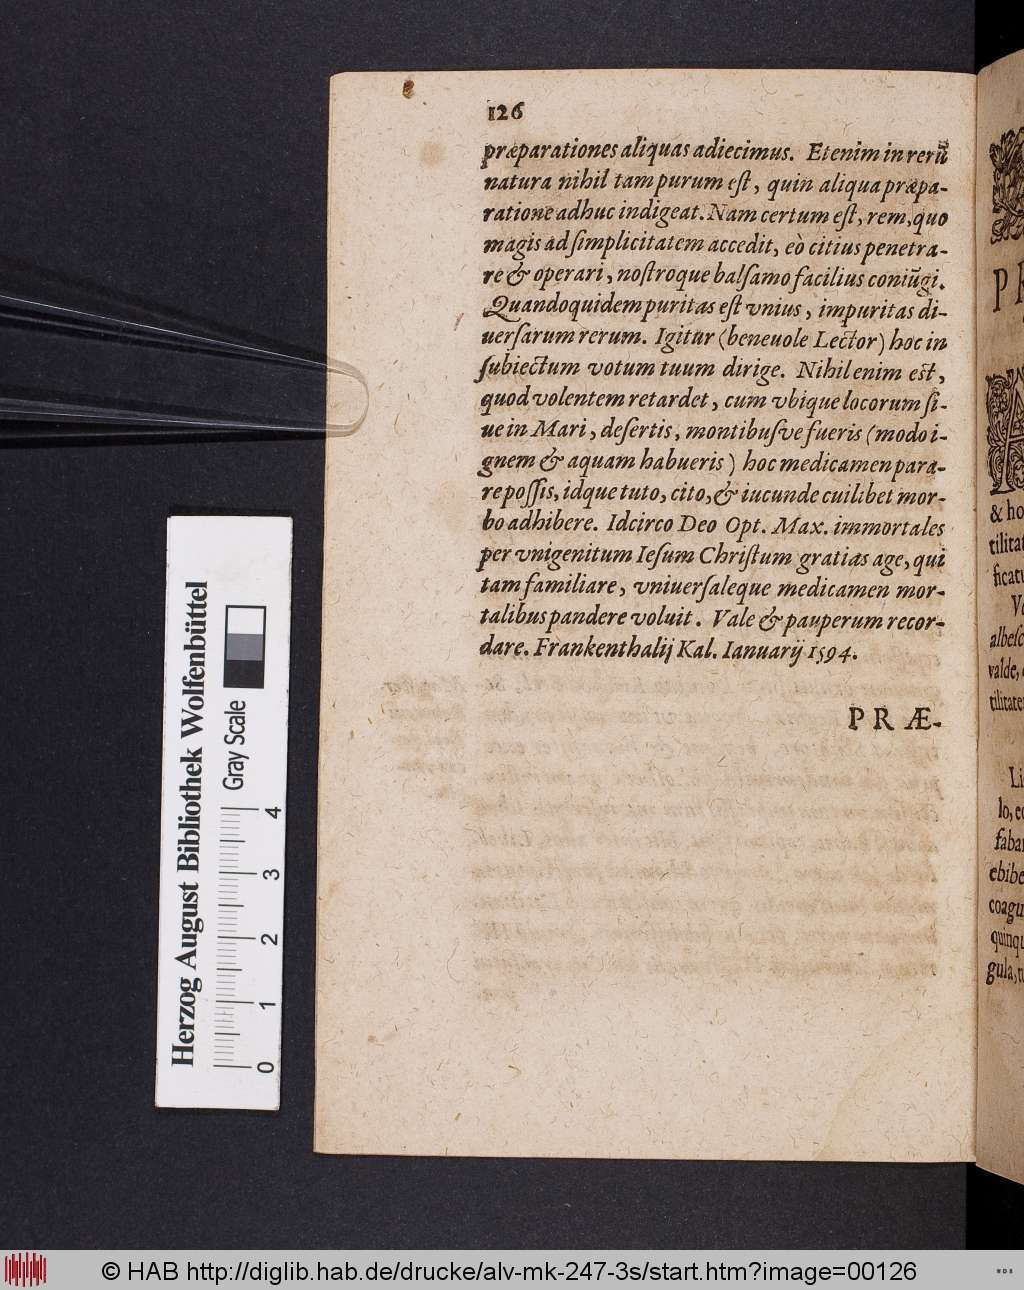 126
præparationes aliquas adiecimus. Etenim in rerū
natura nihil tam purum eſt, quin aliqua præpa-
ratione adhuc indigeat. Nam certum eſt, rem, quo
magis ad ſimplicitatem accedit, eò citius penetra-
re & operari, noſtroque balſamo facilius coniūgi.
Quandoquidem puritas eſt vnius, impuritas di-
uerſarum rerum. Igitur (beneuole Lector) hoc in
ſubiectum votum tuum dirige. Nihil enim eſt,
quod volentem retardet, cum vbique locorum ſi-
ue in Mari, deſertis, montibuſve fueris (modo i-
gnem & aquam habueris) hoc medicamen para-
re poſſis, idque tuto, cito, & iucunde cuilibet mor-
bo adhibere. Idcirco Deo Opt. Max. immortales
per vnigenitum Ieſum Chriſtum gratias age, qui
tam familiare, vniuerſaleque medicamen mor-
talibus pandere voluit. Vale & pauperum recor-
dare. Frankenthalij Kal. Ianuarij 1594.
PRÆ-
& ho
tilitat
ficatu
albeſc
valde,
tilitate
Li
lo, eo
fabar
ebibe
coagu
quinqu
gula, n
Herzog August Bibliothek Wolfenbüttel
Gray Scale
0 1 2 3 4
© HAB http://diglib.hab.de/drucke/alv-mk-247-3s/start.htm?image=00126